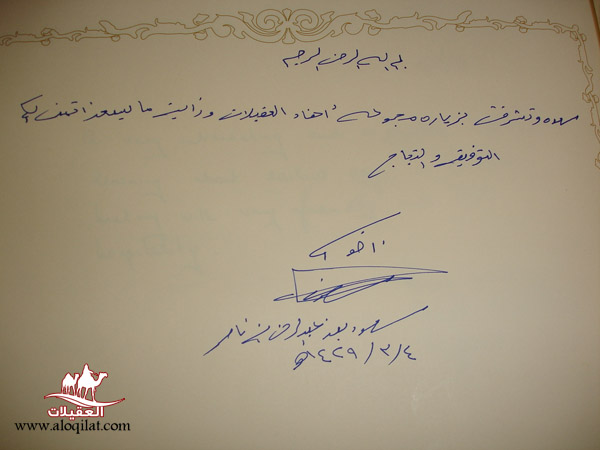 بسم الله الرحمن الرحيم
وتشرفت بزيارة مجموعة أحفاد العقيلات ورأيت ما يسعد أتمنى لكم
التوفيق والنجاح
أخوكم
سعود بن عبدالرحمن بن ناصر
١٤٢٩/٣/٤هـ
العقيلات
www.aloqilat.com